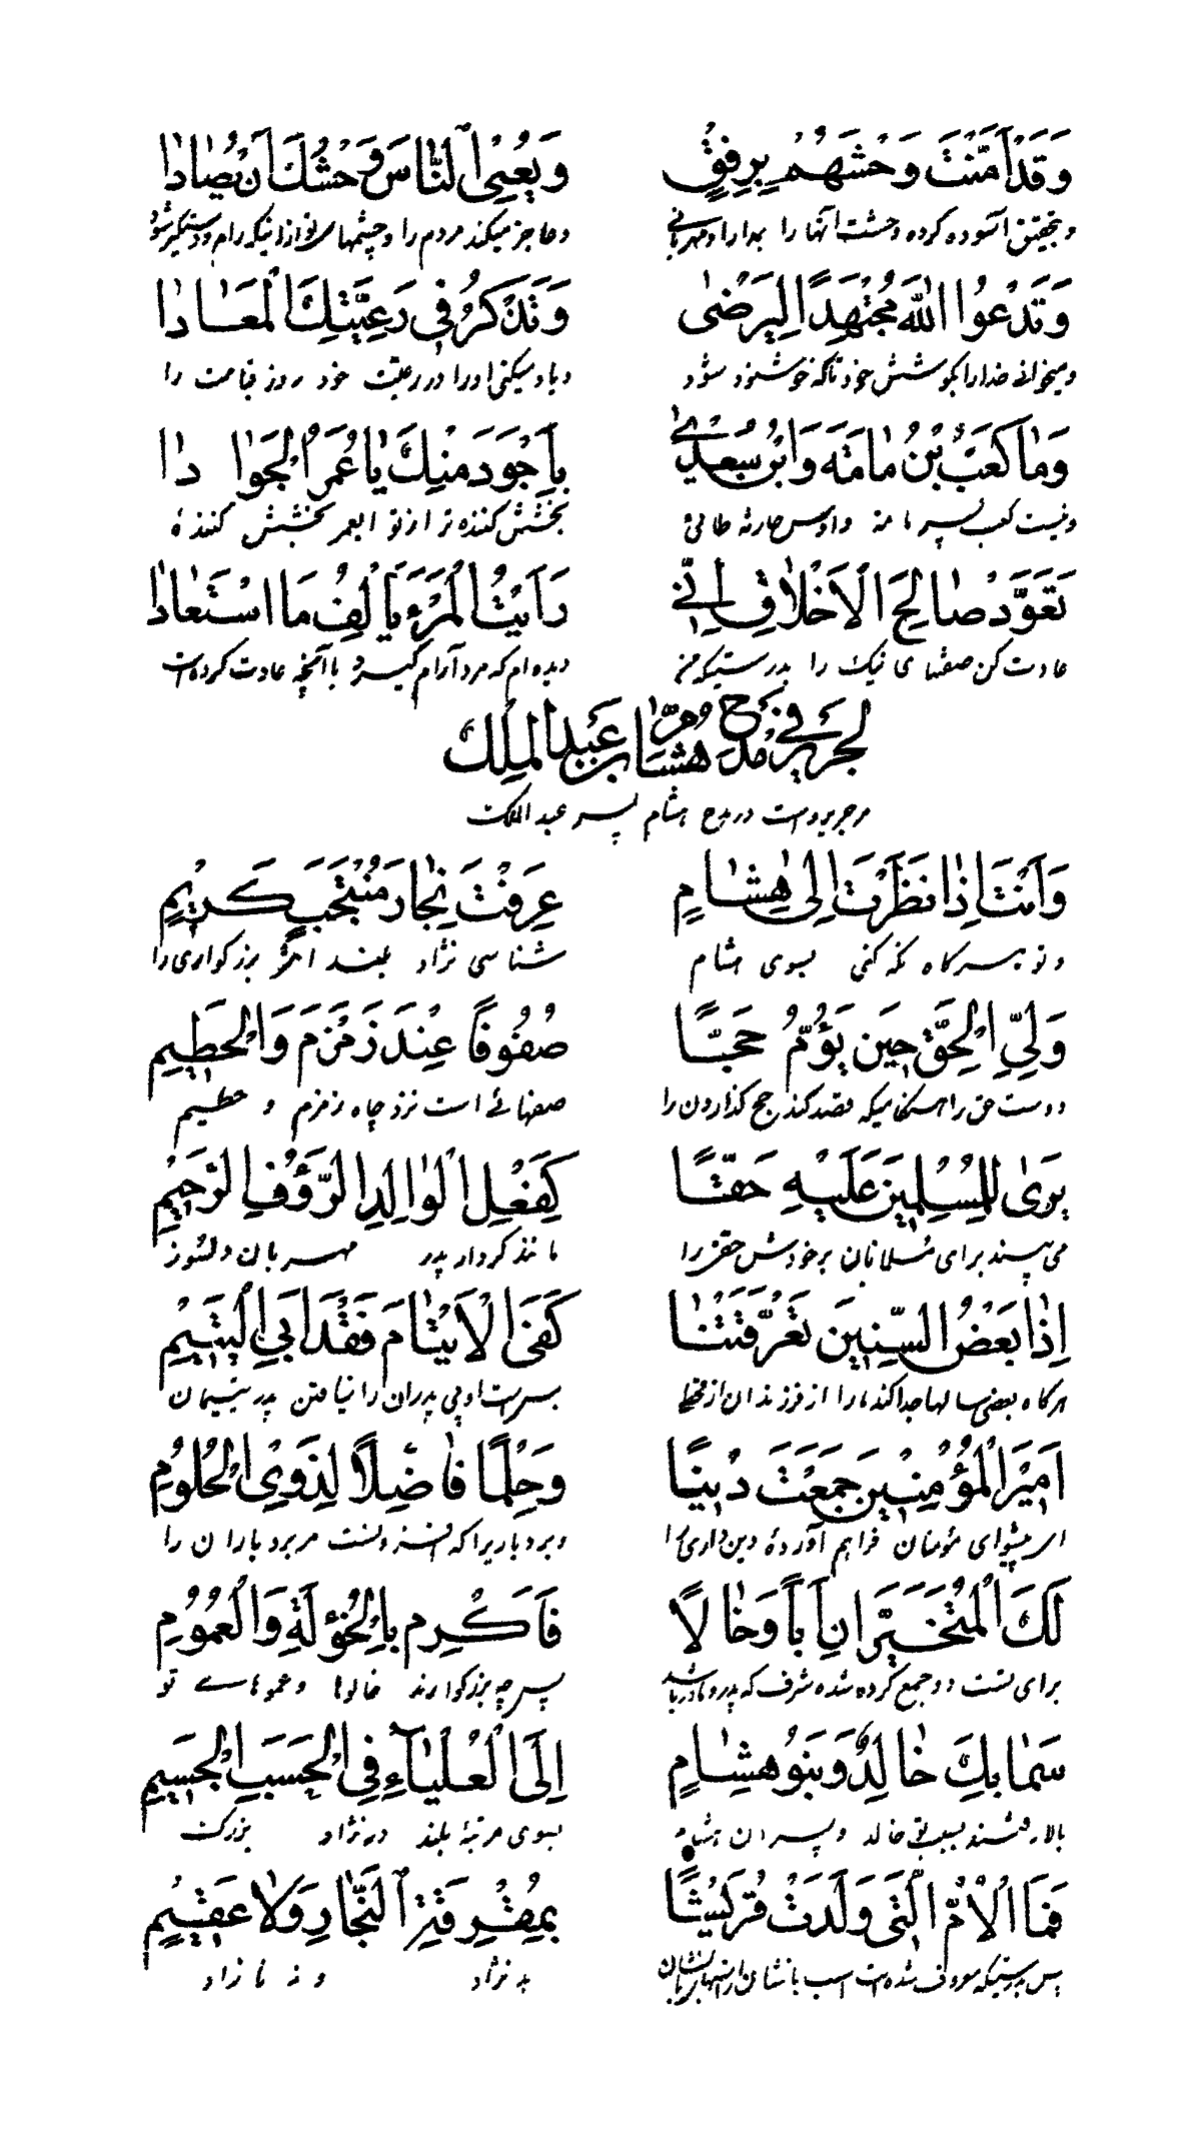 وَقَدْ اَمَّنْتَ وَحْشَهُمْ بِرِفْقٍ وَيُعْيِي النَّاسَ وَحْشُكَ اَنْ يُصَادَا
وبتحقیق آسوده کرده وحشت آنها را بمدارا ومهربانی وعاجز میکند مردم را وحشیهای تو ازانیکه رام ودستگیر شود
وَتَدْعُوا اللّٰهَ مُجْتَهِدًا لِيَرْضٰى وَتَذْكُرُ فِي رَعِيَّتِكَ الْمَعَادَا
ومیخوانی خدا را بکوشش خود تاکه خوشنود شود ویاد میکنی اورا در رعیت خود روز قیامت را
وَمَا كَعْبُ بْنُ مَامَةَ وَابْنُ سُعْدٰى بِاَجْوَدَ مِنْكَ يَا عُمَرَ الْجَوَادَا
ونیست کعب پسر مامة واوس حارثه طائی بخشش کننده تر از تو ایعمر بخشش کننده
تَعَوَّدْ صَالِحَ الْاَخْلَاقِ اِنِّي رَاَيْتُ الْمَرْءَ يَاْلَفُ مَا اسْتَعَادَا
عادت کن صفتهای نیک را بدرستیکه من دیده ام که مرد آرام گیرد باآنچه عادت کرده است
لِجَرِيرٍ فِي مَدْحِ هِشَامِ بْنِ عَبْدِ الْمَلِكِ
مر جریر راست در مدح هشام پسر عبد الملک
وَاَنْتَ اِذَا نَظَرْتَ اِلٰى هِشَامٍ عَرَفْتَ نِجَارَ مُنْتَجَبٍ كَرِيْمٍ
وتو هرگاه نگه کنی بسوی هشام شناسی نژاد بزرگواری را
وَلِيَّ الْحَقِّ حِينَ يَؤُمُّ حَجًّا صُفُوفًا عِنْدَ زَمْزَمَ وَالْحَطِيمِ
دوست حق را هنگامیکه قصد کند حج گذاردن را صفهائے است نزد چاه زمزم و حطیم
يَرٰى لِلْمُسْلِمِينَ عَلَيْهِ حَقًّا كَفِعْلِ الْوَالِدِ الرَّؤُفِ الرَّحِيْمِ
می بیند برای مسلمانان بر خودش حقی را مانند کردار پدر مهربان دلسوز
اِذَا بَعْضُ السِّنِينَ تَعَرَّقَتْنَا كَفَى الْاَيْتَامَ فَقْدَ اَبِي الْيَتِيْمِ
هرگاه بعضی سالها جدا کند مارا از فرزندان از قحط بس است اوبی پدران را نیافتن پدر یتیمان
اَمِيْرَ الْمُؤْمِنِيْنَ جَمَعْتَ دِيْنًا وَحِلْمًا فَاضِلًا لِذَوِي الْحُلُومِ
ای پیشوای مؤمنان فراهم آوردهٔ دین داری را وبردباریرا که مر بردباران را
لَكَ الْمُتَخَيَّرَانِ اَبًا وَخَالًا فَاَكْرِمْ بِالْخُؤُلَةِ وَالْعُمُومِ
برای تست دو جمع کرده شده شرف که پدر ومادر باشد پس چه بزرگوارند خالوها وعموهاے تو
سَمَا بِكَ خَالِدٌ وَبَنُو هِشَامٍ اِلَى الْعَلْيَاءِ فِي الْحَسَبِ الْجَسِيْمِ
بالا رفتند بسبب تو خالد وپسران هشام بسوی مرتبهٔ بلند در نژاد بزرگ
فَمَا الْاُمُّ الَّتِي وَلَدَتْ قُرَيْشًا بِمُقْرِفَةِ النِّجَارِ وَلَا عَقِيْمٍ
بد نژاد و نه نازاد